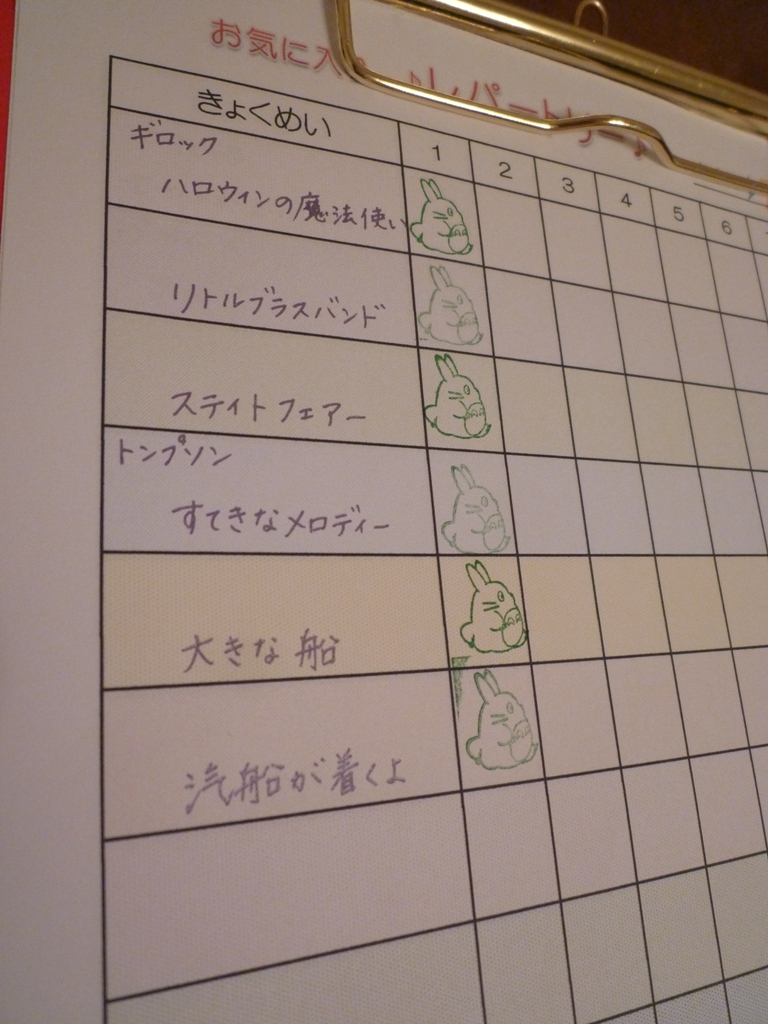 お気に入り♪レパートリー♪
きょくめい 1 2 3 4 5 6
ギロック
ハロウィンの魔法使い
リトルブラスバンド
ステイトフェアー
トンプソン
すてきなメロディー
大きな船
汽船が着くよ